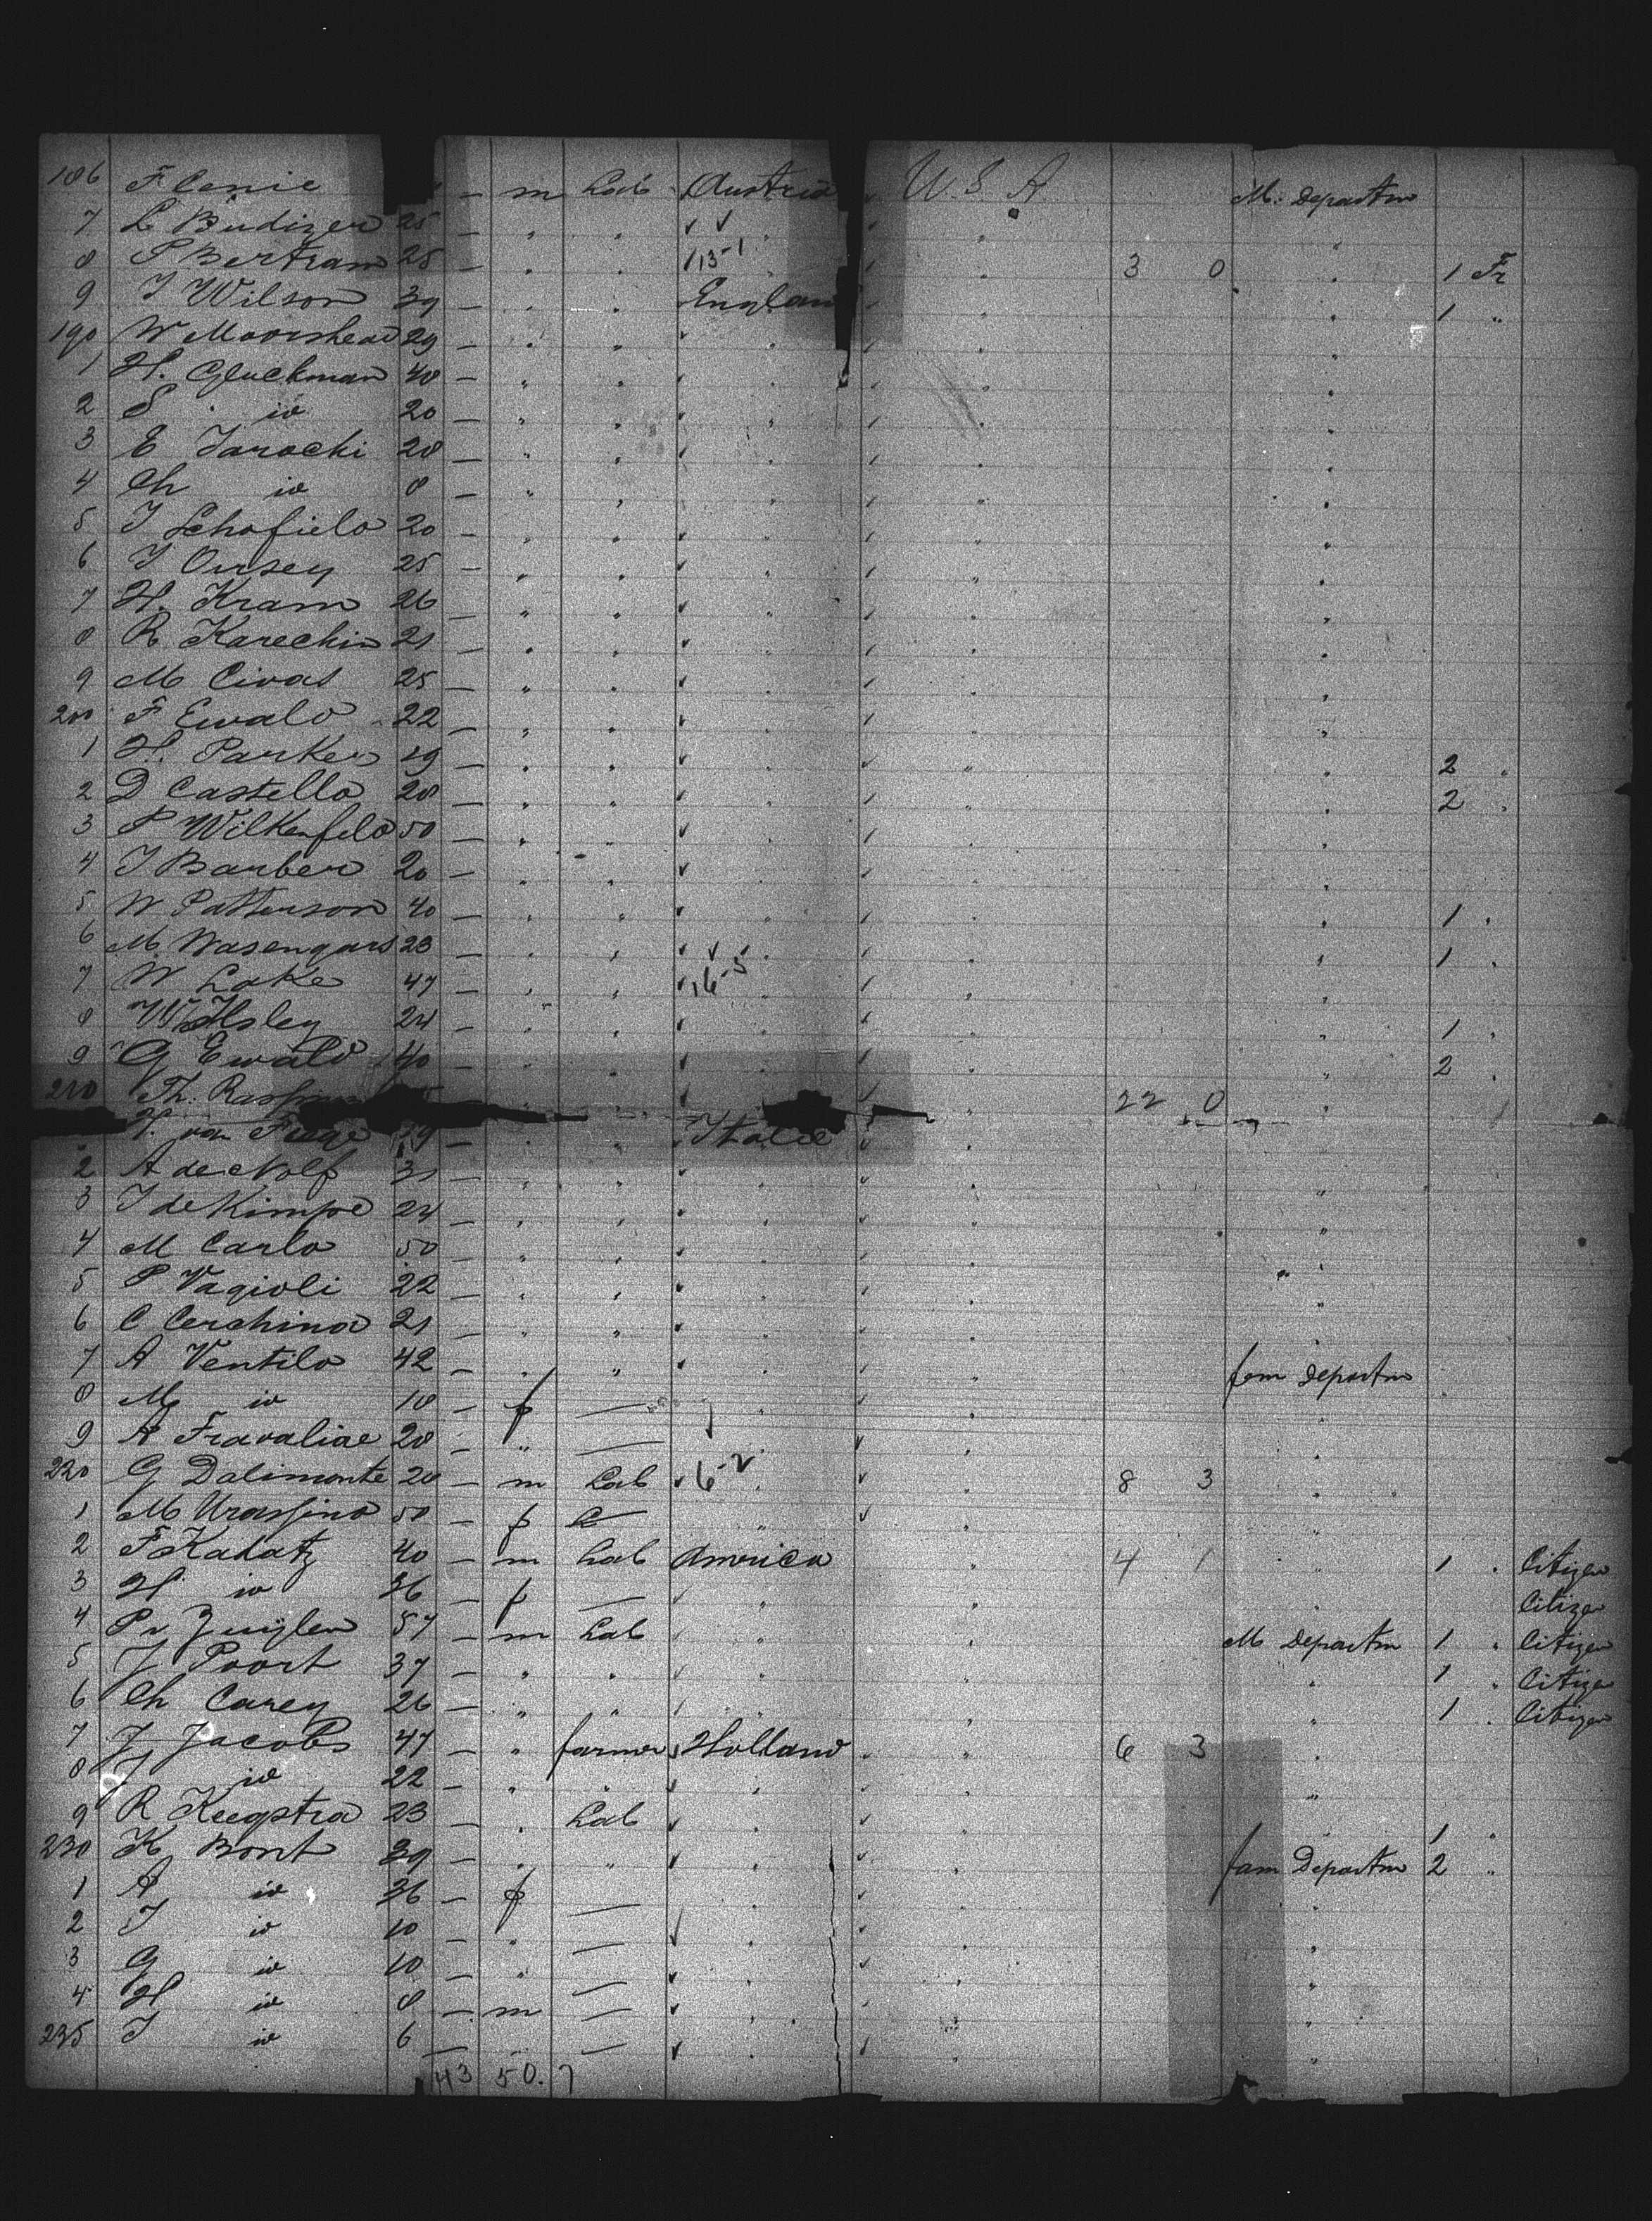 186 F Cenie — m Lab Austria U.S.A M. Departm
7 L Budizer 25 — " " "
8 P Bertram 28 — " " 13-1 " 3 0 " 1 Fr
9 J Wilson 39 — " " England " " 1 "
190 W Moorshead 29 — " " " " "
1 H. Gluckman 40 — " " " " "
2 S. id 20 — " " " " "
3 E Jarochi 28 — " " " " "
4 Ch id 8 — " " " " "
5 J Schofield 20 — " " " " "
6 J Onsey 25 — " " " " "
7 H. Kram 26 — " " " " "
8 R Karechin 21 — " " " " "
9 M Civas 25 — " " " " "
200 F Ewald 22 — " " " " "
1 H. Parker 19 — " " " " " 2 "
2 D Castello 28 — " " " " " 2 "
3 P Wilkenfeld 50 — " " " " "
4 J Barber 20 — " " " " "
5 W Patterson 40 — " " " " " 1 "
6 M. Wasengars 23 — " " " " " 1 "
7 W Lake 47 — " " 16-5 " "
8 W Ilsley 24 — " " " " " 1 "
9 G Ewald 40 — " " " " " 2 "
210 Th. " " " 22 0 "
H. van — " " Italie
2 A de Nolf 31 — " " " " "
3 J de Kimpe 24 — " " " " "
4 M Carlo 50 — " " " " "
5 P Vagioli 22 — " " " " "
6 C Cerchina 21 — " " " " "
7 A Ventilo 42 — " " " " fam Departm
8 M id 18 — f — " "
9 A Fravaliae 28 — " — " " "
220 G Dalimonte 28 — m Lab 6-2 " 8 3 "
1 M Urassino 50 — f — " " "
2 F Kahatz 40 — m Lab America " 4 1 " 1 " Citizen
3 H id 36 — f — " " " Citizen
4 P v Zuijlen 57 — m Lab " " M Departm 1 " Citizen
5 J Poort 37 — " " " " " 1 " Citizen
6 Ch Carey 26 — " " " " " 1 " Citizen
7 J Jacobs 47 — " farmer Holland " 6 3 "
8 J id 22 — " " " " "
9 R Keegstra 23 — " Lab " " " 1 "
230 K Bont 39 — " " " " fam Departm 2 "
1 A id 36 — f — " " "
2 J id 10 — " — " " "
3 G id 10 — " — " " "
4 H id 8 — m — " " "
235 J id 6 — " — " " "
43 50. 7